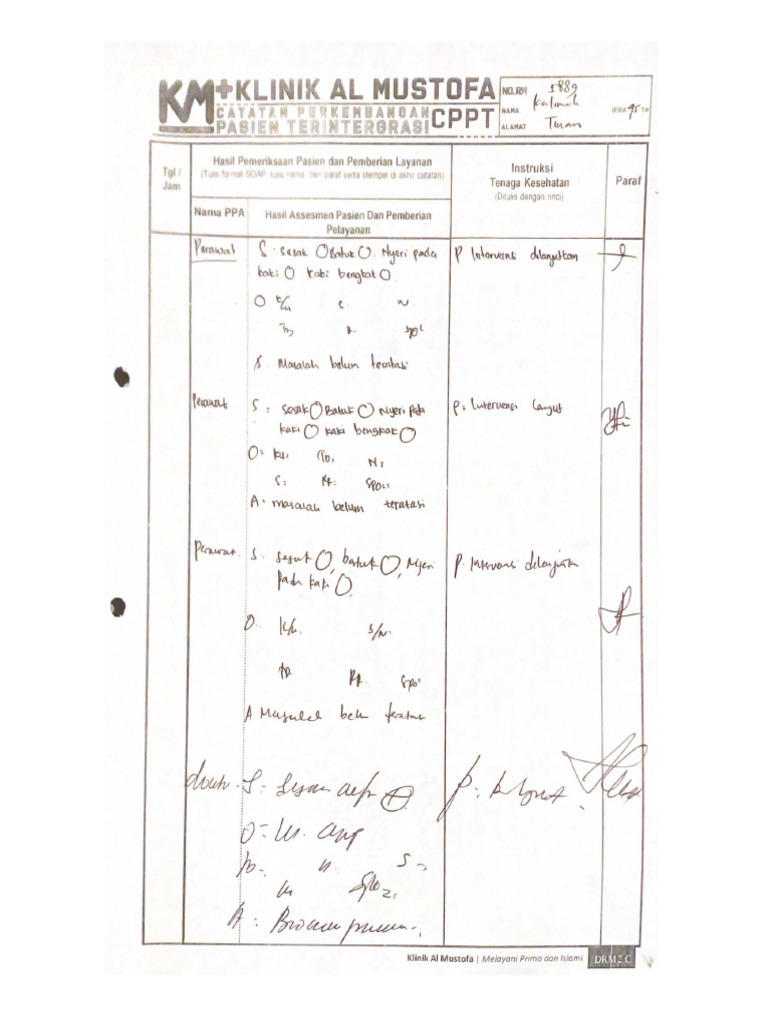 KM+ KLINIK AL MUSTOFA
CATATAN PERKEMBANGAN
PASIEN TERINTERGRASI CPPT
NO.RM 5889
NAMA Kalimah USIA 95 TH
ALAMAT Turen
Tgl / Jam
Hasil Pemeriksaan Pasien dan Pemberian Layanan
(Tulis format SOAP, tulis nama, beri paraf serta stempel di akhir catatan)
Instruksi
Tenaga Kesehatan
(Ditulis dengan rinci)
Paraf
Nama PPA
Hasil Assesmen Pasien Dan Pemberian
Pelayanan
Perawat S : Sesak O Batuk O. Nyeri pada P Intervensi dilanjutkan
kaki O kaki bengkak O.
O K/u S. N.
TD R. SPO2
S. Masalah belum teratasi
Perawat S : Sesak O Batuk O Nyeri pada P: Intervensi Lanjut
kaki O kaki bengkak O
O: ku: TD: N:
S: R: SPO2:
A: masalah belum teratasi
Perawat S : Sesak O, batuk O, Nyeri P. Intervensi dilanjutkan
pada kaki O.
O. K/u. S/N.
TD. RR. SPO2
A Masalah belum teratasi
S = Sesak P:
O =
N. S
SPO2:
A :
Klinik Al Mustofa | Melayani Prima dan Islami DRM 2 C